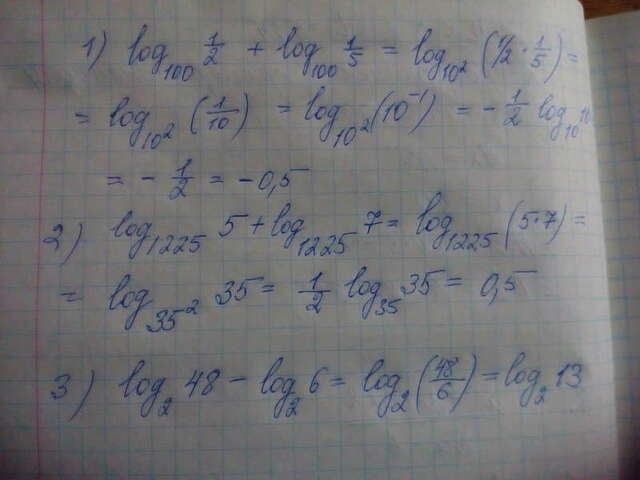 1) log₁₀₀ 1/2 + log₁₀₀ 1/5 = log₁₀² (1/2 · 1/5) =
= log₁₀² (1/10) = log₁₀² (10⁻¹) = - 1/2 log₁₀ 10
= - 1/2 = -0,5
2) log₁₂₂₅ 5 + log₁₂₂₅ 7 = log₁₂₂₅ (5·7) =
= log₃₅² 35 = 1/2 log₃₅ 35 = 0,5
3) log₂ 48 - log₂ 6 = log₂ (48/6) = log₂ 13